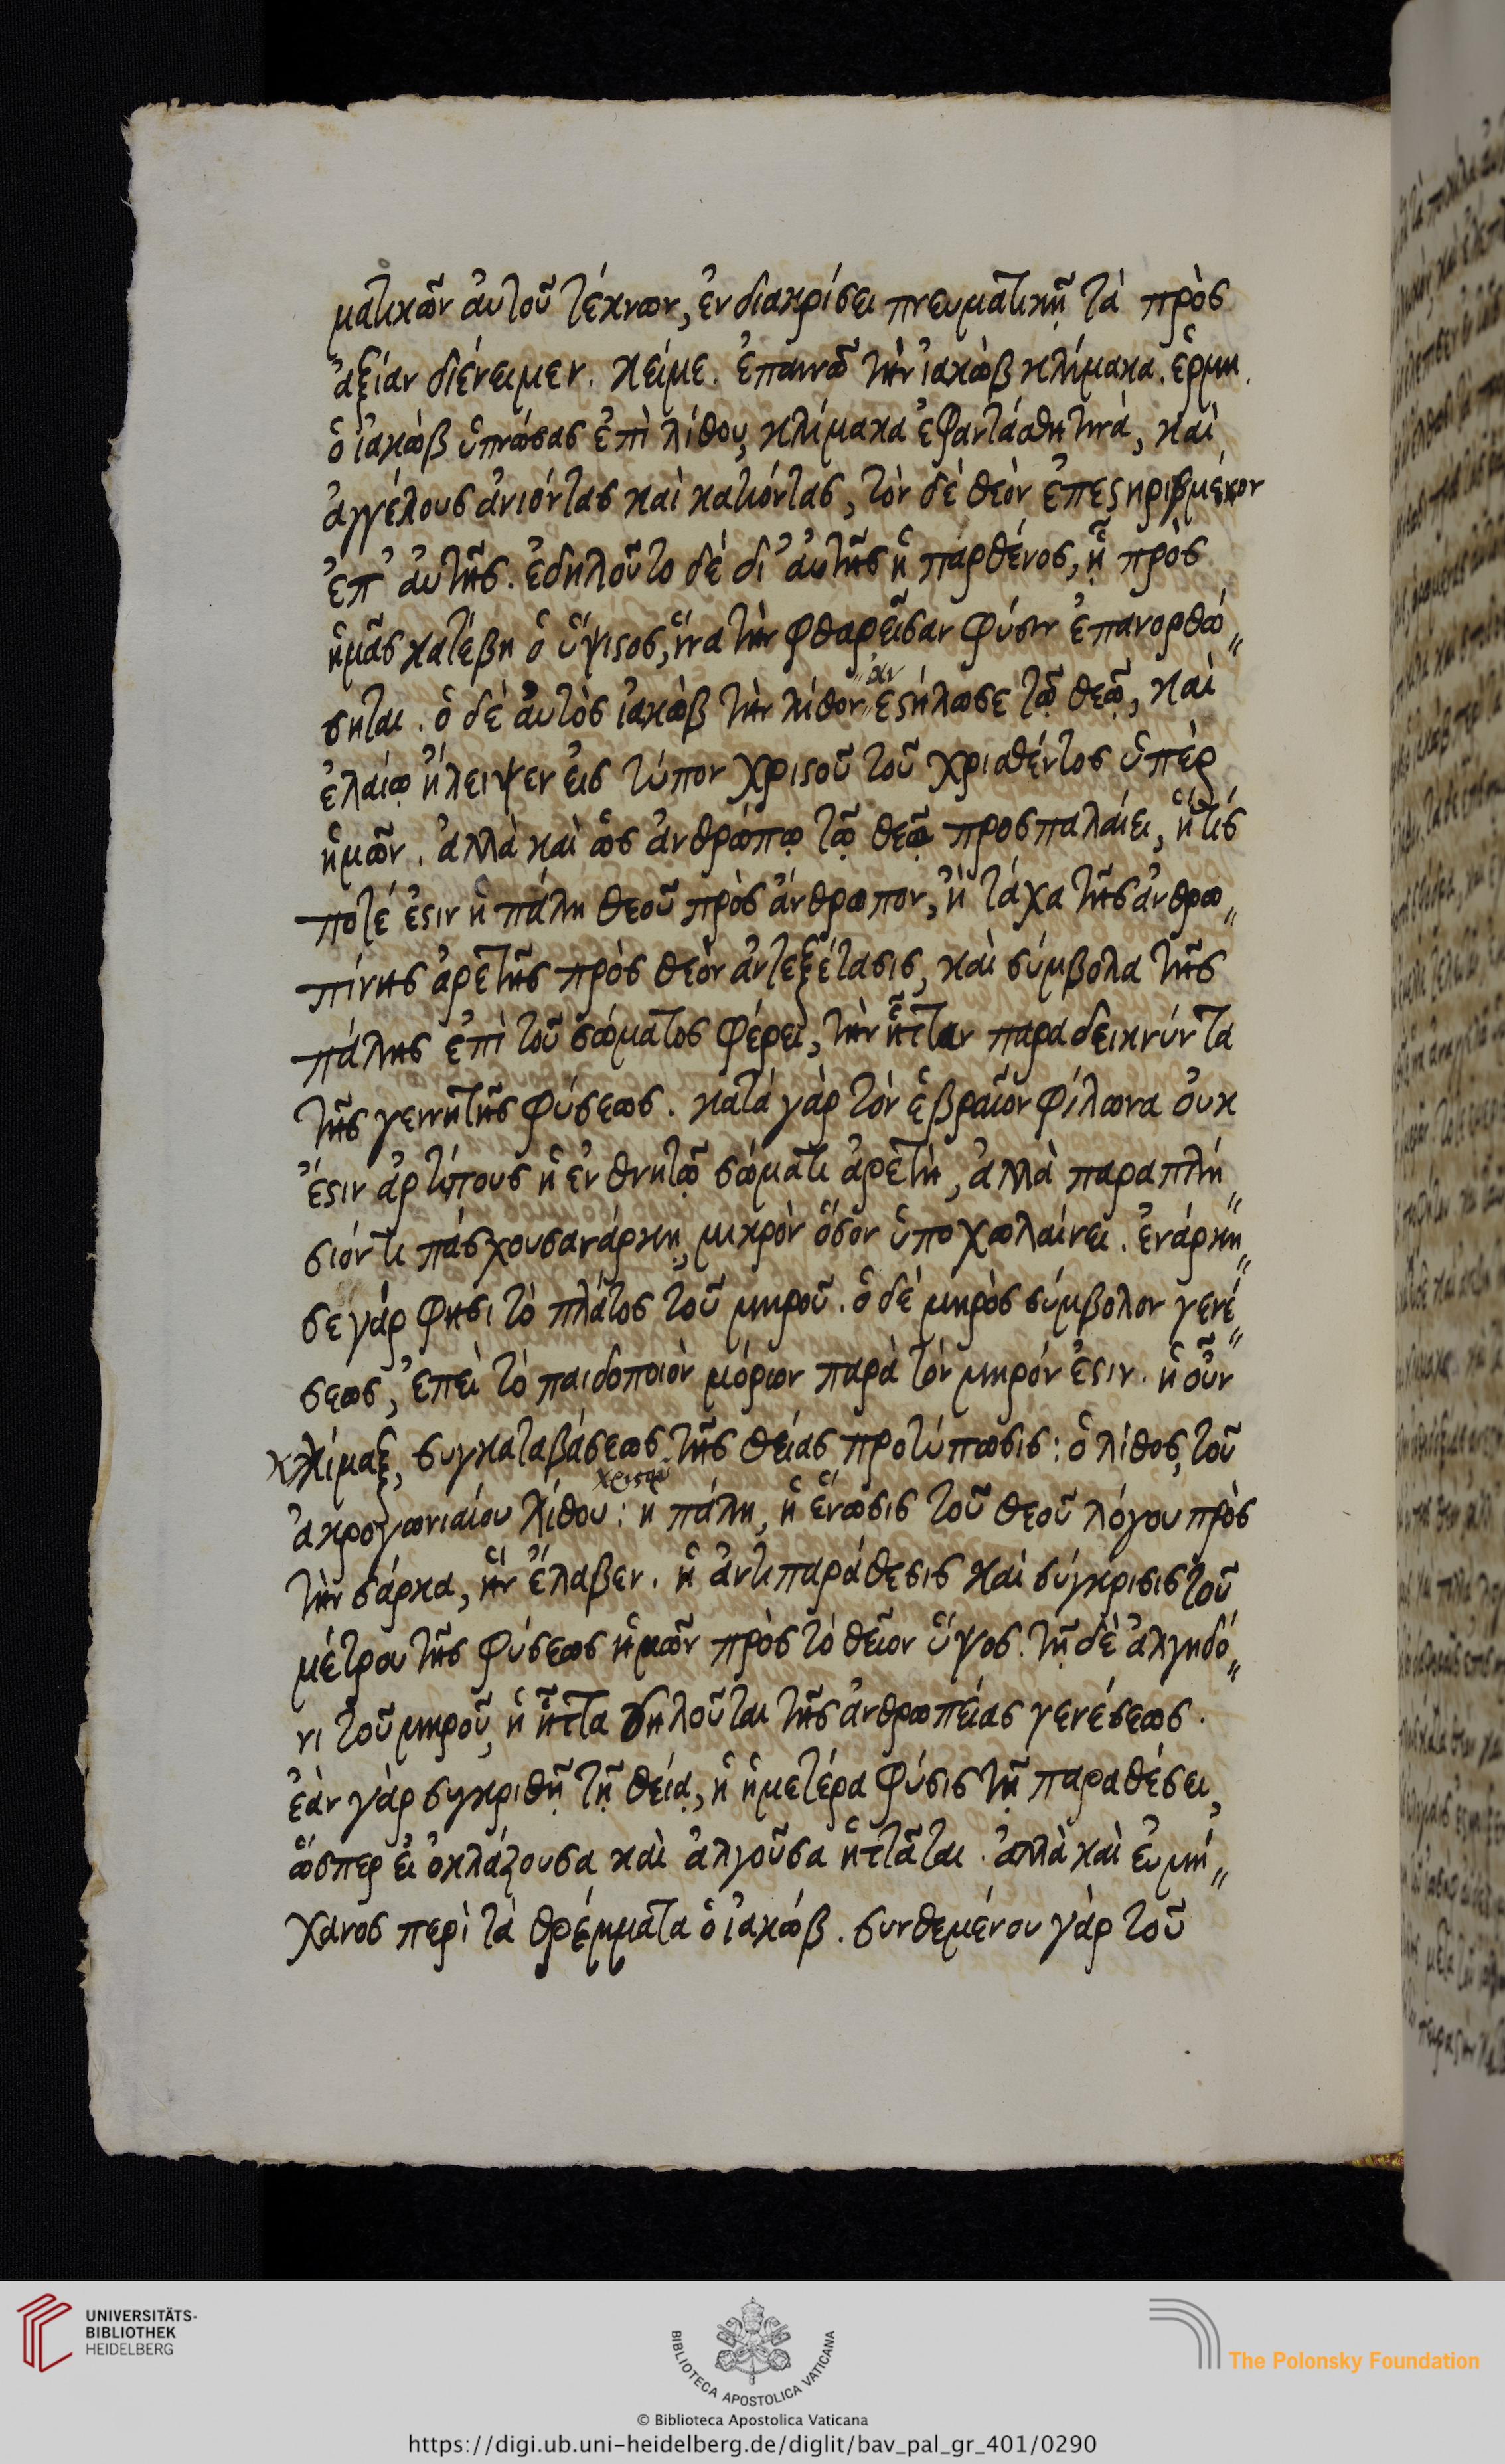 ματικῶν ἀυτοῦ τέκνων, ἐν διακρίσει πνευματικῇ τὰ πρὸς
ἀξίαν διένειμεν. κείμε. ἐπαινῶ τὴν ἰακὼβ κλίμακα. ἑρμη.
ὁ ἰακὼβ ὑπνώσας ἐπὶ λίθου, κλίμακα ἐφαντάσθη τινά, καὶ
ἀγγέλους ἀνιόντας καὶ κατιόντας, τὸν δὲ θεὸν ἐπεϛηριγμένον
ἐπ' ἀυτῆς. ἐδηλοῦτο δὲ δι' ἀυτῆς ἡ παρθένος, ᾗ πρὸς
ἡμᾶς κατέβη ὁ ὕψιϛος, ἵνα τὴν φθαρεῖσαν φύσιν ἐπανορθώ„
σηται. ὁ δὲ ἀυτὸς ἰακὼβ τὴν λίθον ἐϛήλωσε τῷ θεῷ, καὶ
ἐλαίῳ ἤλειψεν εἰς τύπον χριϛοῦ τοῦ χρισθέντος ὑπὲρ
ἡμῶν. ἀλλὰ καὶ ὡς ἀνθρώπῳ τῷ θεῷ προσπαλαίει, ἥτίς
ποτέ ἐϛιν ἡ πάλη θεοῦ πρὸς ἄνθρωπον, ἢ τάχα τῆς ἀνθρω„
πίνης ἀρετῆς πρὸς θεὸν ἀντεξέτασις, καὶ σύμβολα τῆς
πάλης ἐπὶ τοῦ σώματος φέρει, τὴν ἧτταν παραδεικνύντα
τῆς γεννητῆς φύσεως. κατὰ γὰρ τὸν ἑβραῖον φίλωνα ὀυκ
ἔϛιν ἀρτίπους ἡ ἐν θνητῷ σώματι ἀρετὴ, ἀλλὰ παραπλή„
σιόν τι πάσχουσα νάρκῃ, μικρὸν ὅσον ὑποχωλαίνει. ἐνάρκη„
σε γάρ φησι τὸ πλάτος τοῦ μηροῦ. ὁ δὲ μηρὸς σύμβολον γενέ„
σεως, ἐπεὶ τὸ παιδοποιὸν μόριον παρὰ τὸν μηρόν ἐϛιν. ἡ οὖν
κλίμαξ, συγκαταβάσεως τῆς θείας προτύπωσις: ὁ λίθος, τοῦ
χριϛοῦ
ἀκρογωνιαίου λίθου: η πάλη, ἡ ἕνωσις τοῦ θεοῦ λόγου πρὸς
τὴν σάρκα, ἣν ἔλαβεν. ἡ ἀντιπαράθεσις καὶ σύγκρισις τοῦ
μέτρου τῆς φύσεως ἡμῶν πρὸς τὸ θεῖον ὕψος. τῇ δὲ ἀλγηδό„
νι τοῦ μηροῦ, ἡ ἧττα δηλοῦται τῆς ἀνθρωπείας γενέσεως.
ἐὰν γὰρ συγκριθῇ τῇ θείᾳ, ἡ ἡμετέρα φύσις τῇ παραθέσει,
ὥσπερ εἰ ὀκλάζουσα καὶ ἀλγοῦσα ἡττᾶται. ἀλλὰ καὶ ἐυμή„
χανος περὶ τὰ θρέμματα ὁ ἰακώβ. συνθεμένου γὰρ τοῦ
UNIVERSITÄTS-
BIBLIOTHEK
HEIDELBERG
BIBLIOTECA APOSTOLICA VATICANA
The Polonsky Foundation
© Biblioteca Apostolica Vaticana
https://digi.ub.uni-heidelberg.de/diglit/bav_pal_gr_401/0290